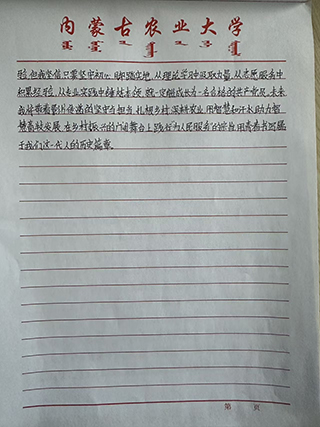 内蒙古农业大学
验。但我坚信只要坚守初心、脚踏实地，从理论学习中汲取力量，从志愿服务中
积累经验，从专业实践中锤炼本领，就一定能成长为一名合格的共产党员。未来
我将带着影像传递的坚守与担当，扎根乡村，深耕农业，用智慧和汗水助力智
慧畜牧发展，在乡村振兴的广阔舞台上践行为人民服务的宗旨，用青春书写属
于我们这一代人的历史篇章。
第 页